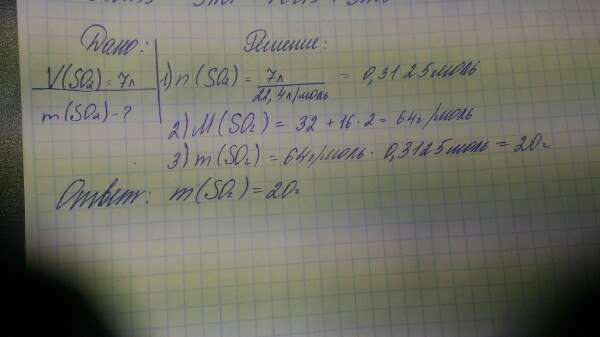 Дано:
Решение:
V(SO₂) = 7л
1) n(SO₂) = 7л / 22,4л/моль = 0,3125моль
m(SO₂) - ?
2) M(SO₂) = 32 + 16 · 2 = 64г/моль
3) m(SO₂) = 64г/моль · 0,3125моль = 20г
Ответ: m(SO₂) = 20г